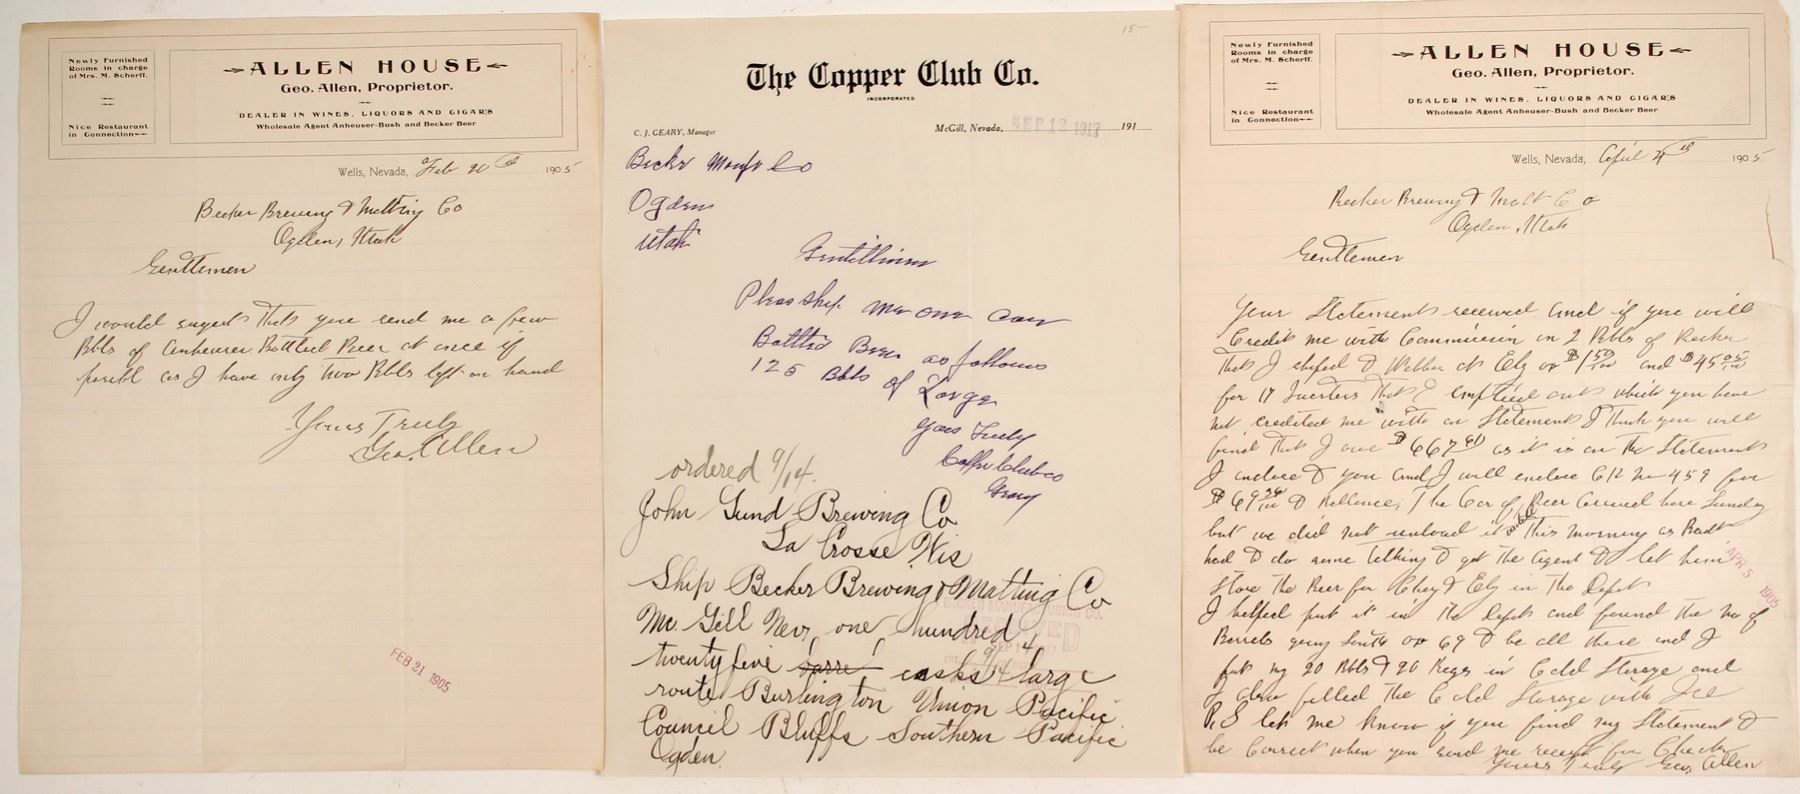 Newly Furnished
Rooms in charge
of Mrs. M. Scherff.
Nice Restaurant
in Connection
ALLEN HOUSE
Geo. Allen, Proprietor.
DEALER IN WINES, LIQUORS AND CIGARS
Wholesale Agent Anheuser-Bush and Becker Beer
Wells, Nevada, Feb 20th 1905
Becker Brewing & Malting Co
Ogden, Utah
Gentlemen
I would sugest that you send me a few
Bbls of Anheuser Bottled Beer at once if
posibl as I have only Two Bbls left on hand
Yours Truly
Geo. Allen
FEB 21 1905
15-
The Copper Club Co.
INCORPORATED
C. J. GEARY, Manager
McGill, Nevada, SEP 12 1917 191
Becker Manfr Co
Ogden
Utah
Gentillimen
Pleas ship me one car
Bottled Beer as follows
125 Bbls of Large
Yours Truly
Copper Club Co
Geary
ordered 9/14.
John Gund Brewing Co
La Crosse Wis
Ship Becker Brewing & Malting Co
Mc Gill Nev, one hundred
twenty five barrel casks large
9/14
route Burlington Union Pacific
Council Bluffs Southern Pacific
Ogden.
Newly Furnished
Rooms in charge
of Mrs. M. Scherff.
Nice Restaurant
in Connection
ALLEN HOUSE
Geo. Allen, Proprietor.
DEALER IN WINES, LIQUORS AND CIGARS
Wholesale Agent Anheuser-Bush and Becker Beer
Wells, Nevada, April 4th 1905
Becker Brewing & Malt Co
Ogden, Utah
Gentlemen
Your Statement received and if you will
Credit me with Commission on 2 Bbls of Becker
That I shiped to Webber at Ely or $1 50/100 and $45
for 17 that I emptied out which you have
not credited me with on Statement I think you will
find that I owe $667 as it is on the Statement
I enclose to you and I will enclose Ck No 459 for
$69 to Ballence, The Car of Beer arrived here Sunday
but we did not unload it untill this morning as
had to do some talking to get the agent to let him
store the Beer for & Ely in the Depot
I helped put it in the Depot and found the No of
Barrels going South or 69 to be all there and I
put my 20 Bbls & 20 Kegs in Cold Storage and
I also filled the Cold Storage with Ice
P.S let me know if you find my Statement to
be Correct when you send me receipt for Check
Yours Truly Geo. Allen
APR 5 1905